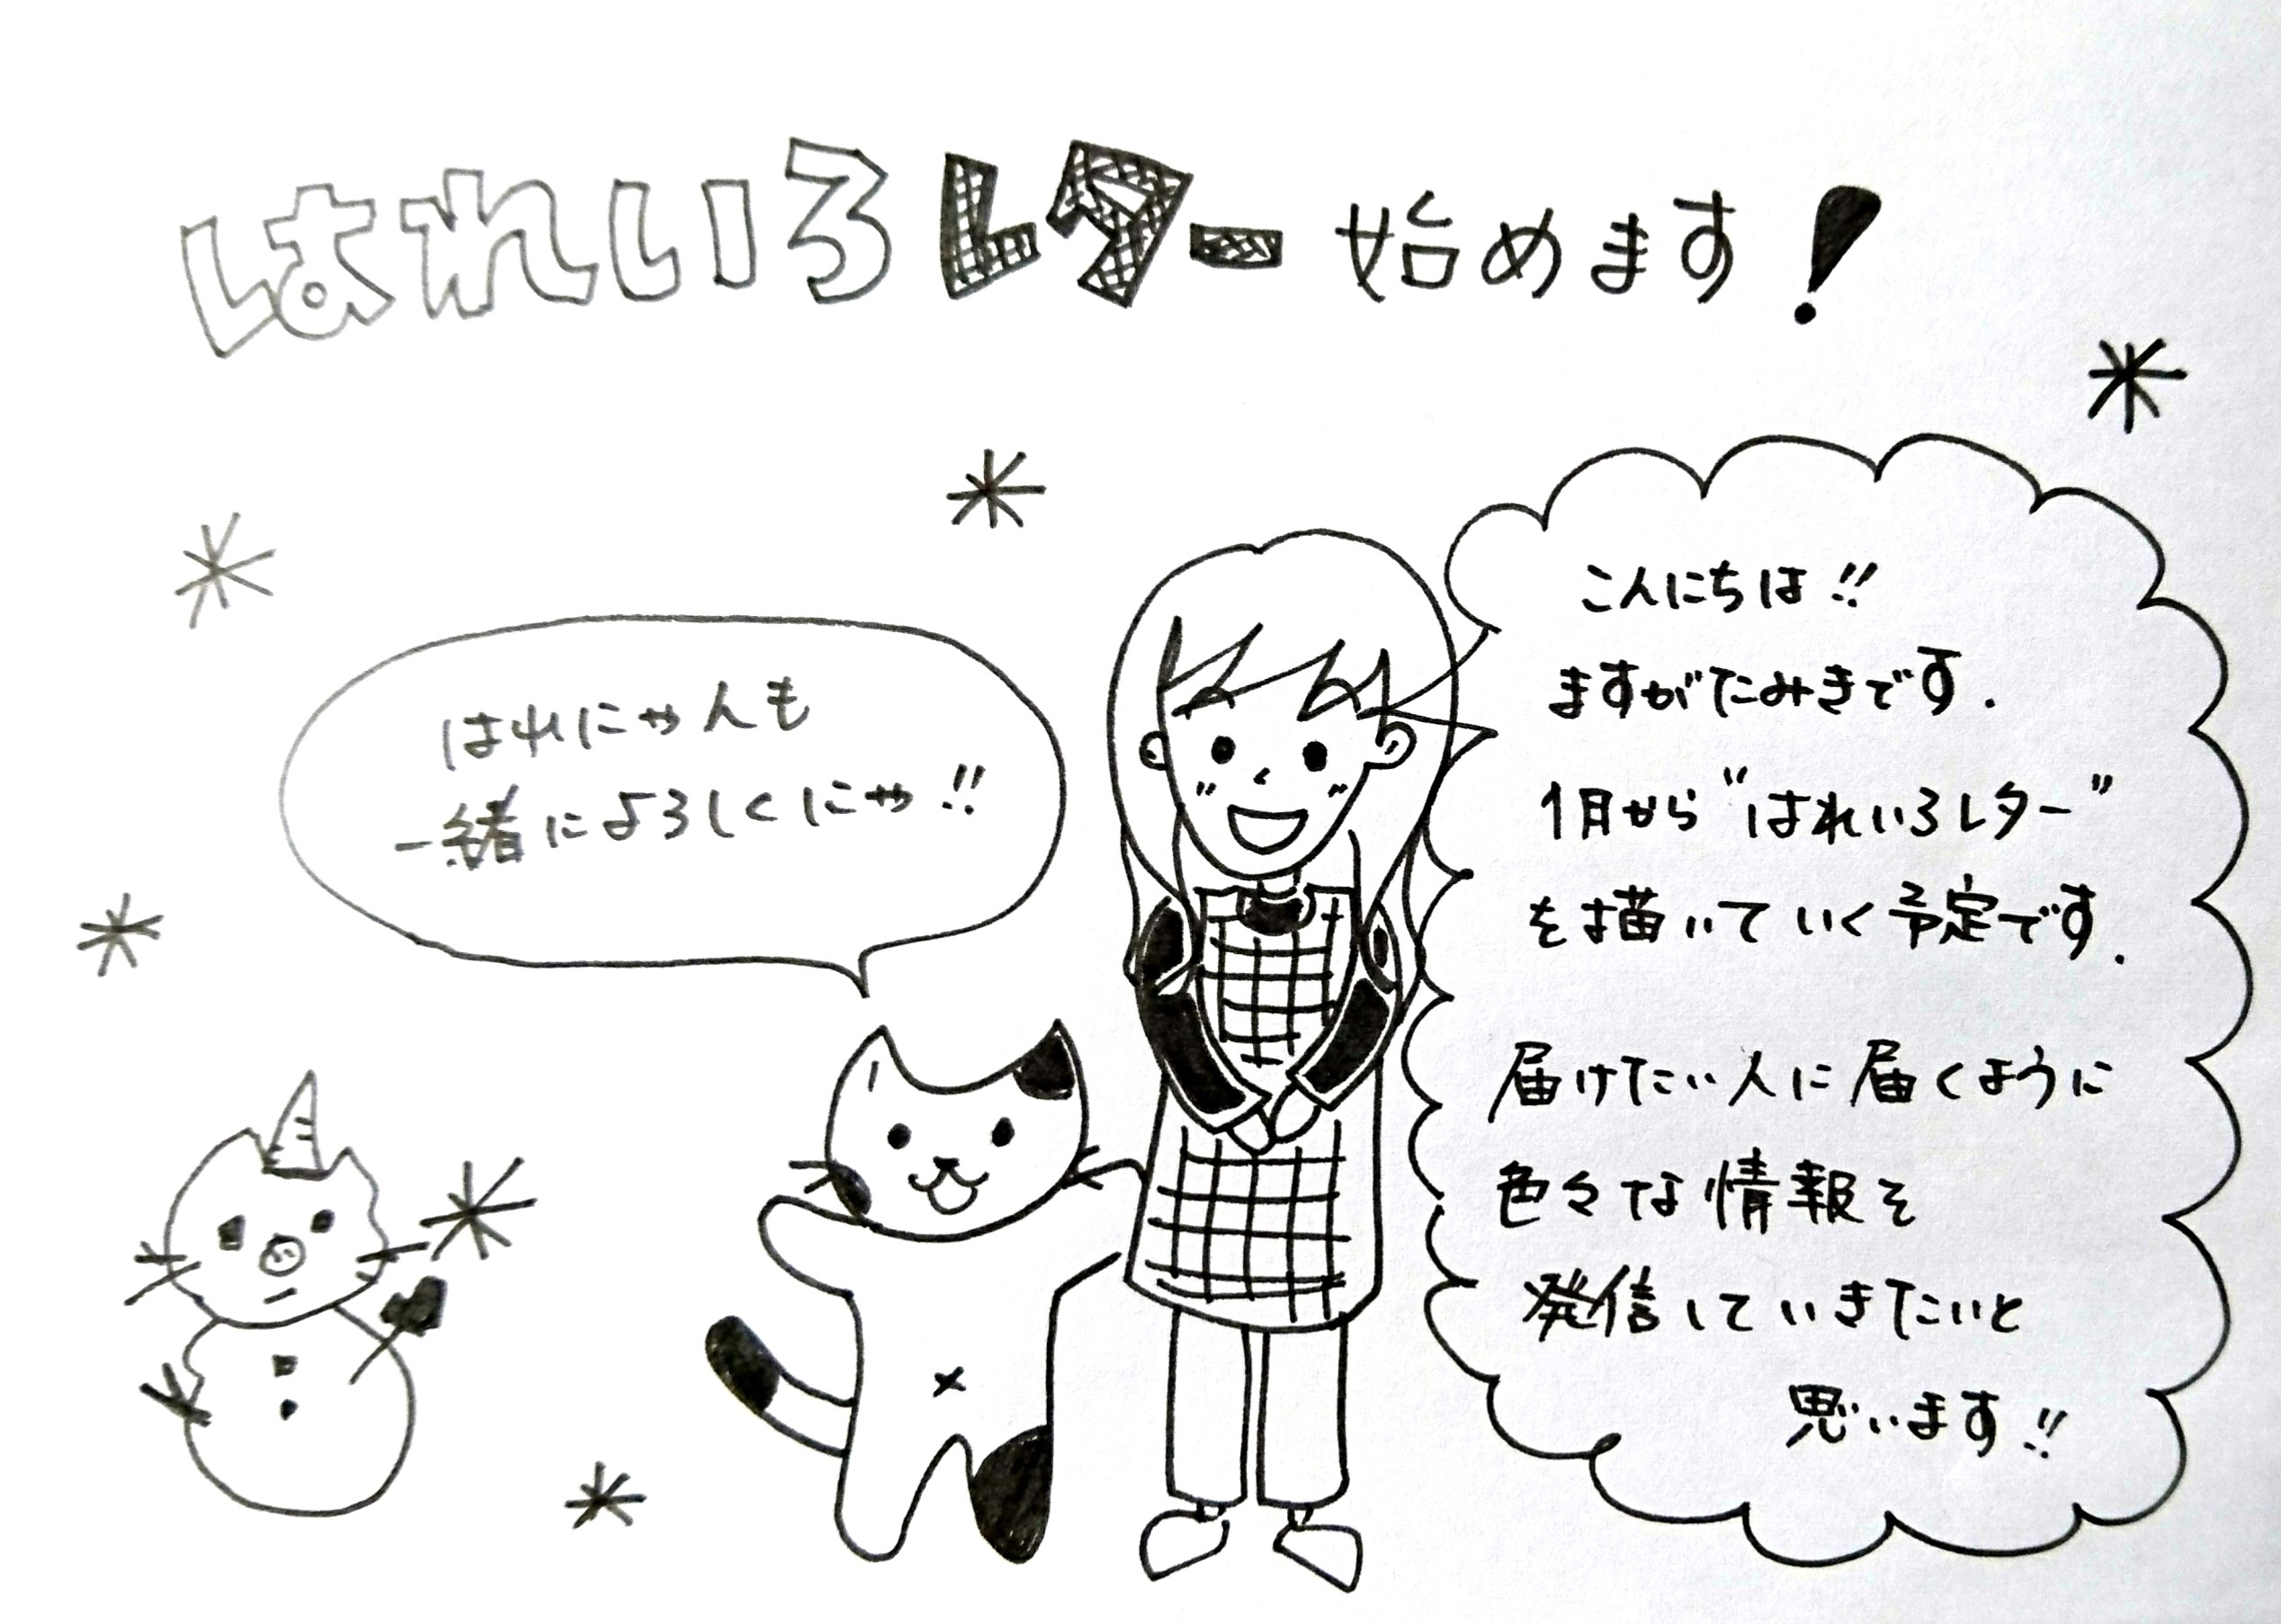 はれいろレター始めます！
はれにゃんも
一緒によろしくにゃ!!
こんにちは!!
ますがたみきです.
1月から"はれいろレター"
を描いていく予定です.
届けたい人に届くように
色々な情報を
発信していきたいと
思います!!